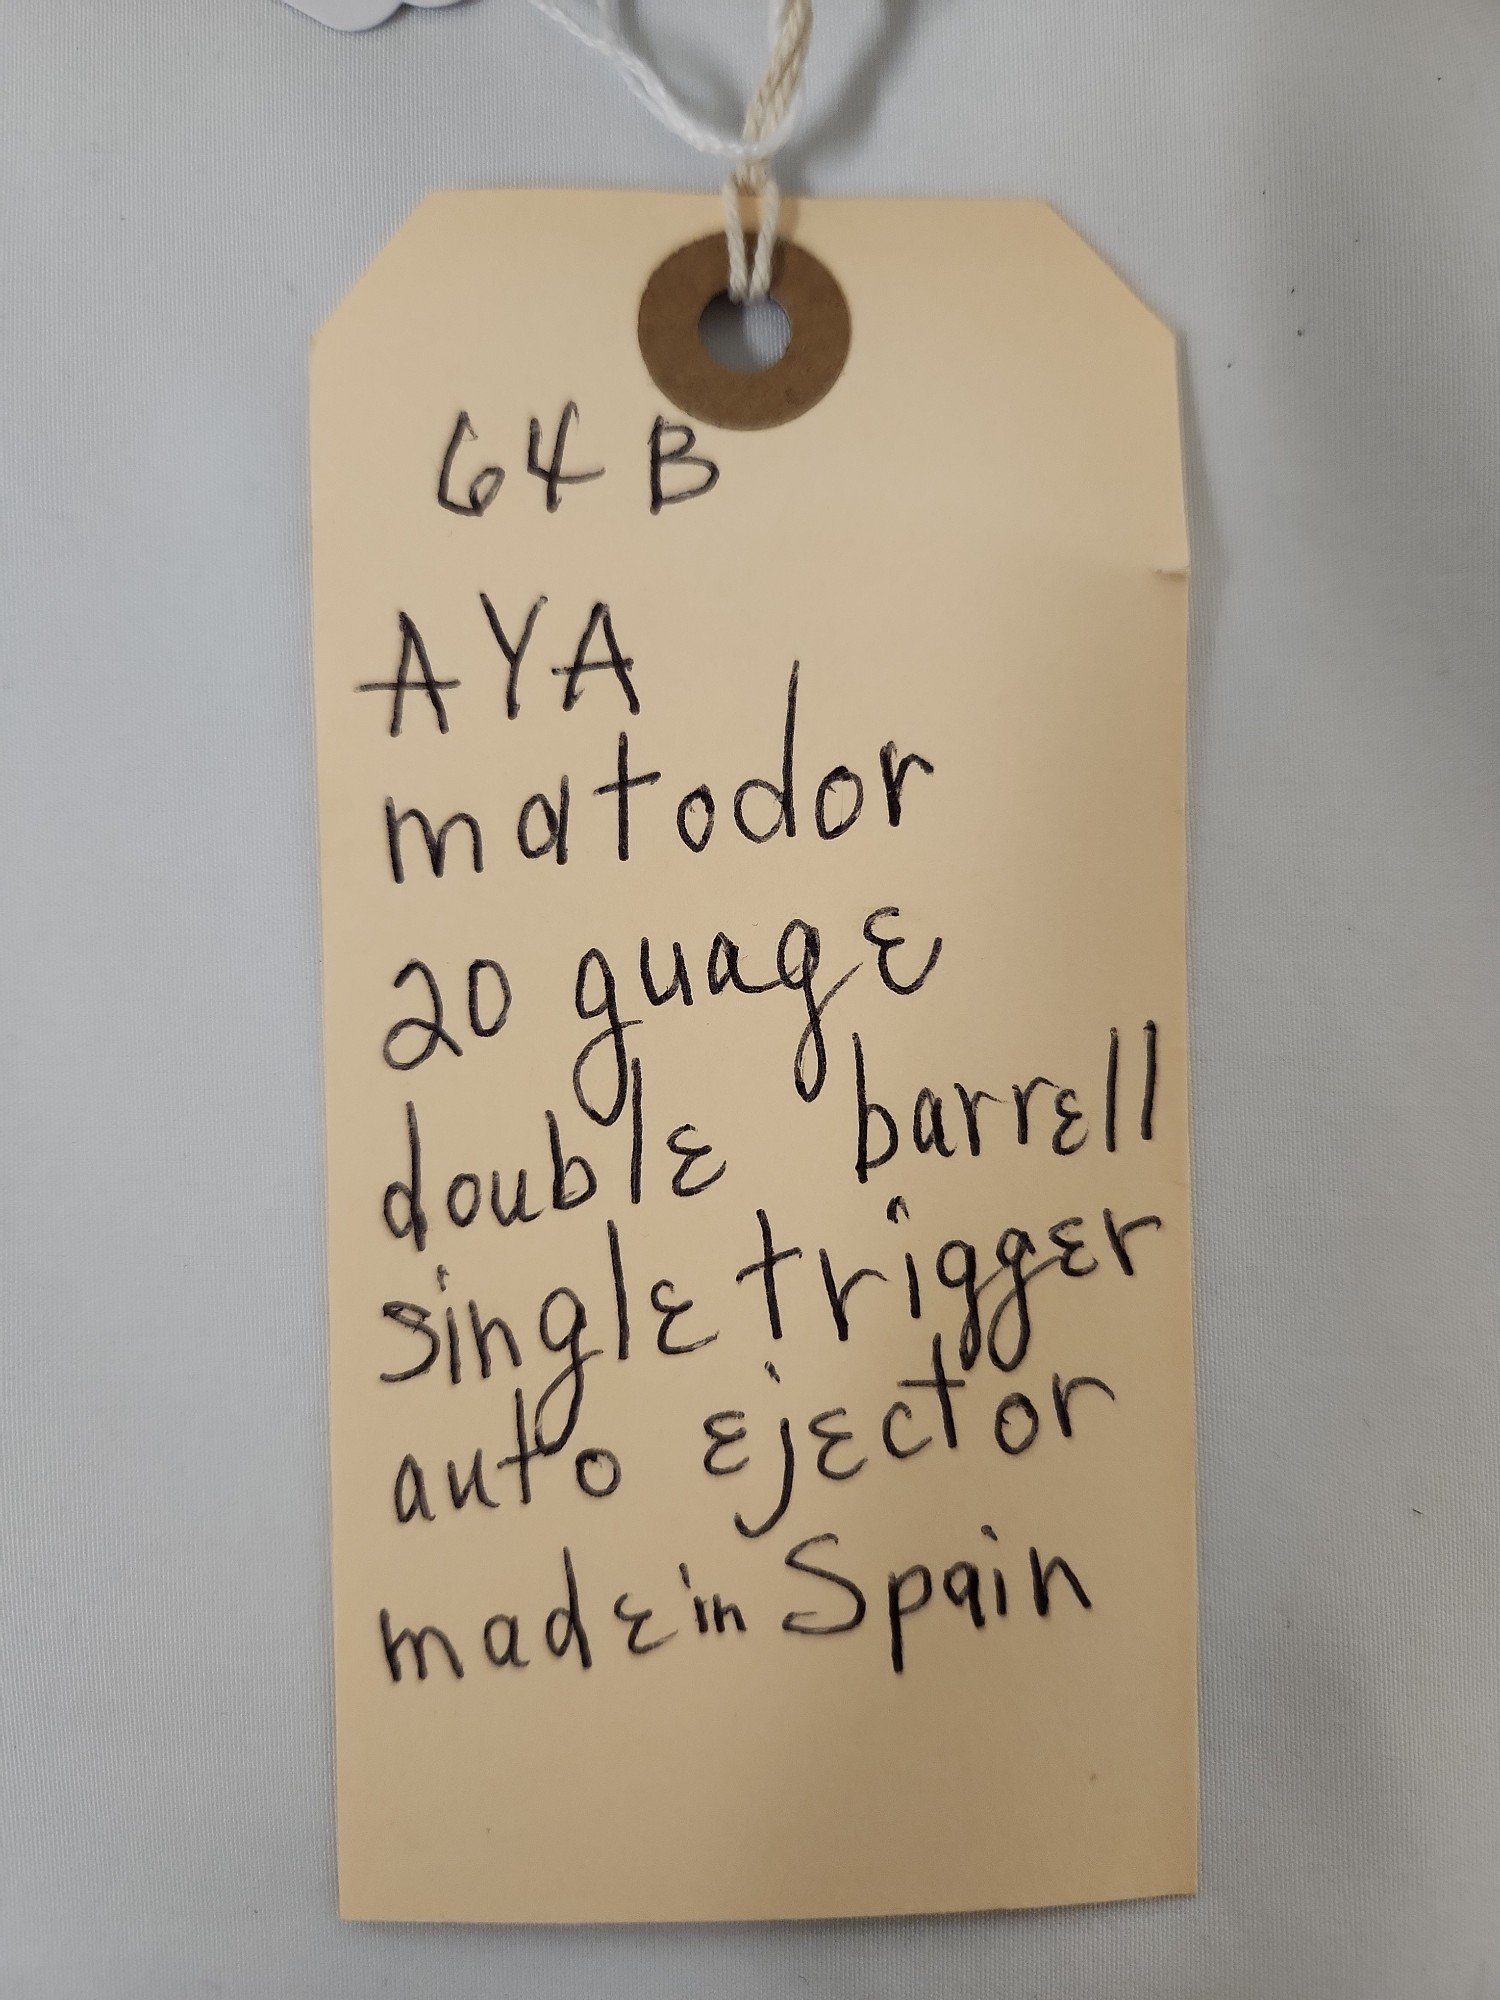 64 B
AYA
matodor
20 guage
double barrell
single trigger
auto ejector
made in Spain